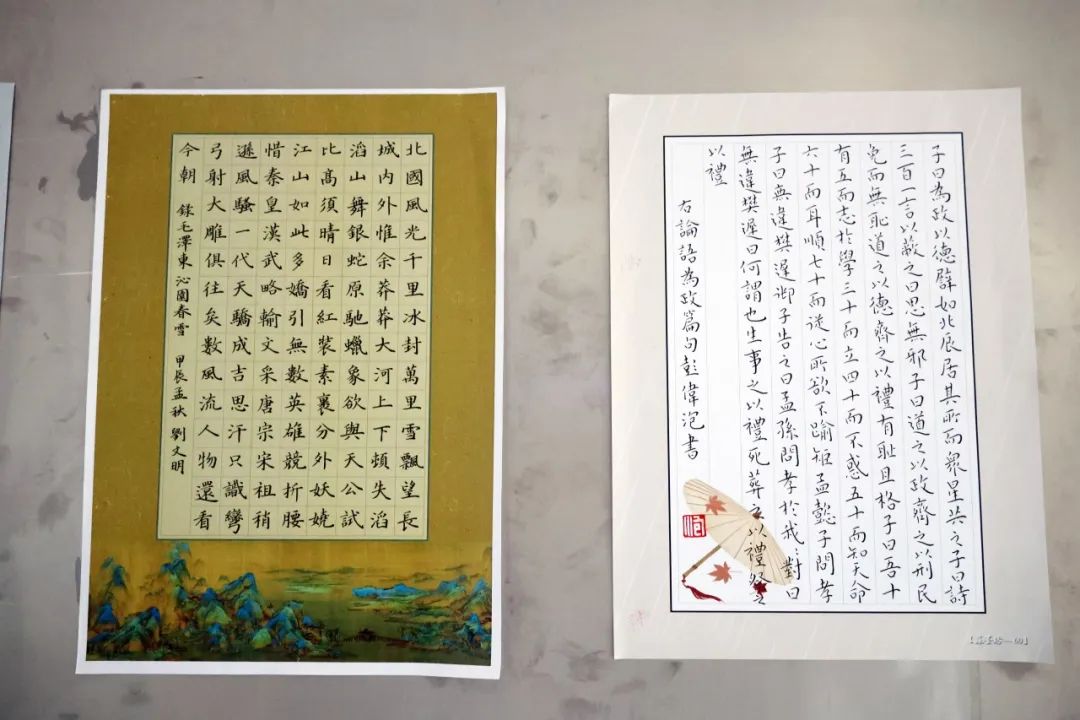 北國風光千里冰封萬里雪飄望長
城內外惟余莽莽大河上下頓失滔
滔山舞銀蛇原馳蠟象欲與天公試
比高須晴日看紅裝素裹分外妖嬈
江山如此多嬌引無數英雄競折腰
惜秦皇漢武略輸文采唐宗宋祖稍
遜風騷一代天驕成吉思汗只識彎
弓射大雕俱往矣數風流人物還看
今朝 錄毛澤東沁園春雪 甲辰孟秋 劉文明
子曰為政以德譬如北辰居其所而眾星共之子曰詩
三百一言以蔽之曰思無邪子曰道之以政齊之以刑民
免而無耻道之以德齊之以禮有耻且格子曰吾十
有五而志於學三十而立四十而不惑五十而知天命
六十而耳順七十而從心所欲不踰矩孟懿子問孝
子曰無違樊遲御子告之曰孟孫問孝於我々對曰
無違樊遲曰何謂也生事之以禮死葬之以禮祭之
以禮
右論語為政篇句彭偉泡書